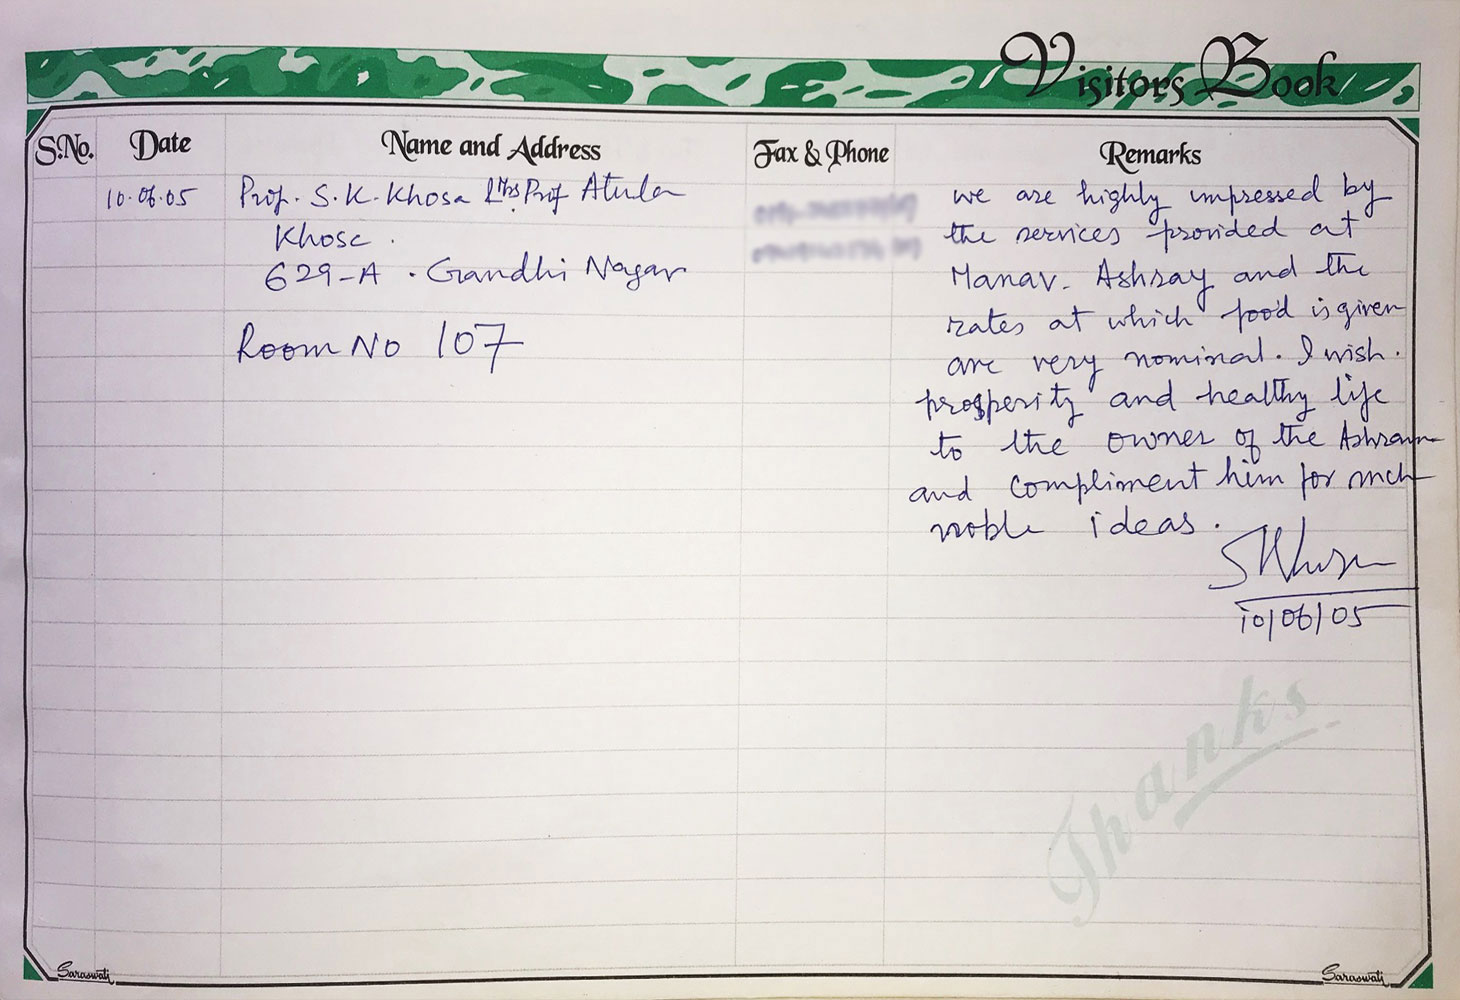 Visitors Book
S.No. Date Name and Address Fax & Phone Remarks
10.06.05
Prof. S.K. Khosa & Mrs Prof Atula
Khosa.
629-A. Gandhi Nagar
Room No 107
we are highly impressed by
the services provided at
Manav. Ashray and the
rates at which food is given
are very nominal. I wish.
prosperity and healthy life
to the owner of the Ashram
and compliment him for such
noble ideas.
SKhosa
10/06/05
Thanks
Saraswati
Saraswati